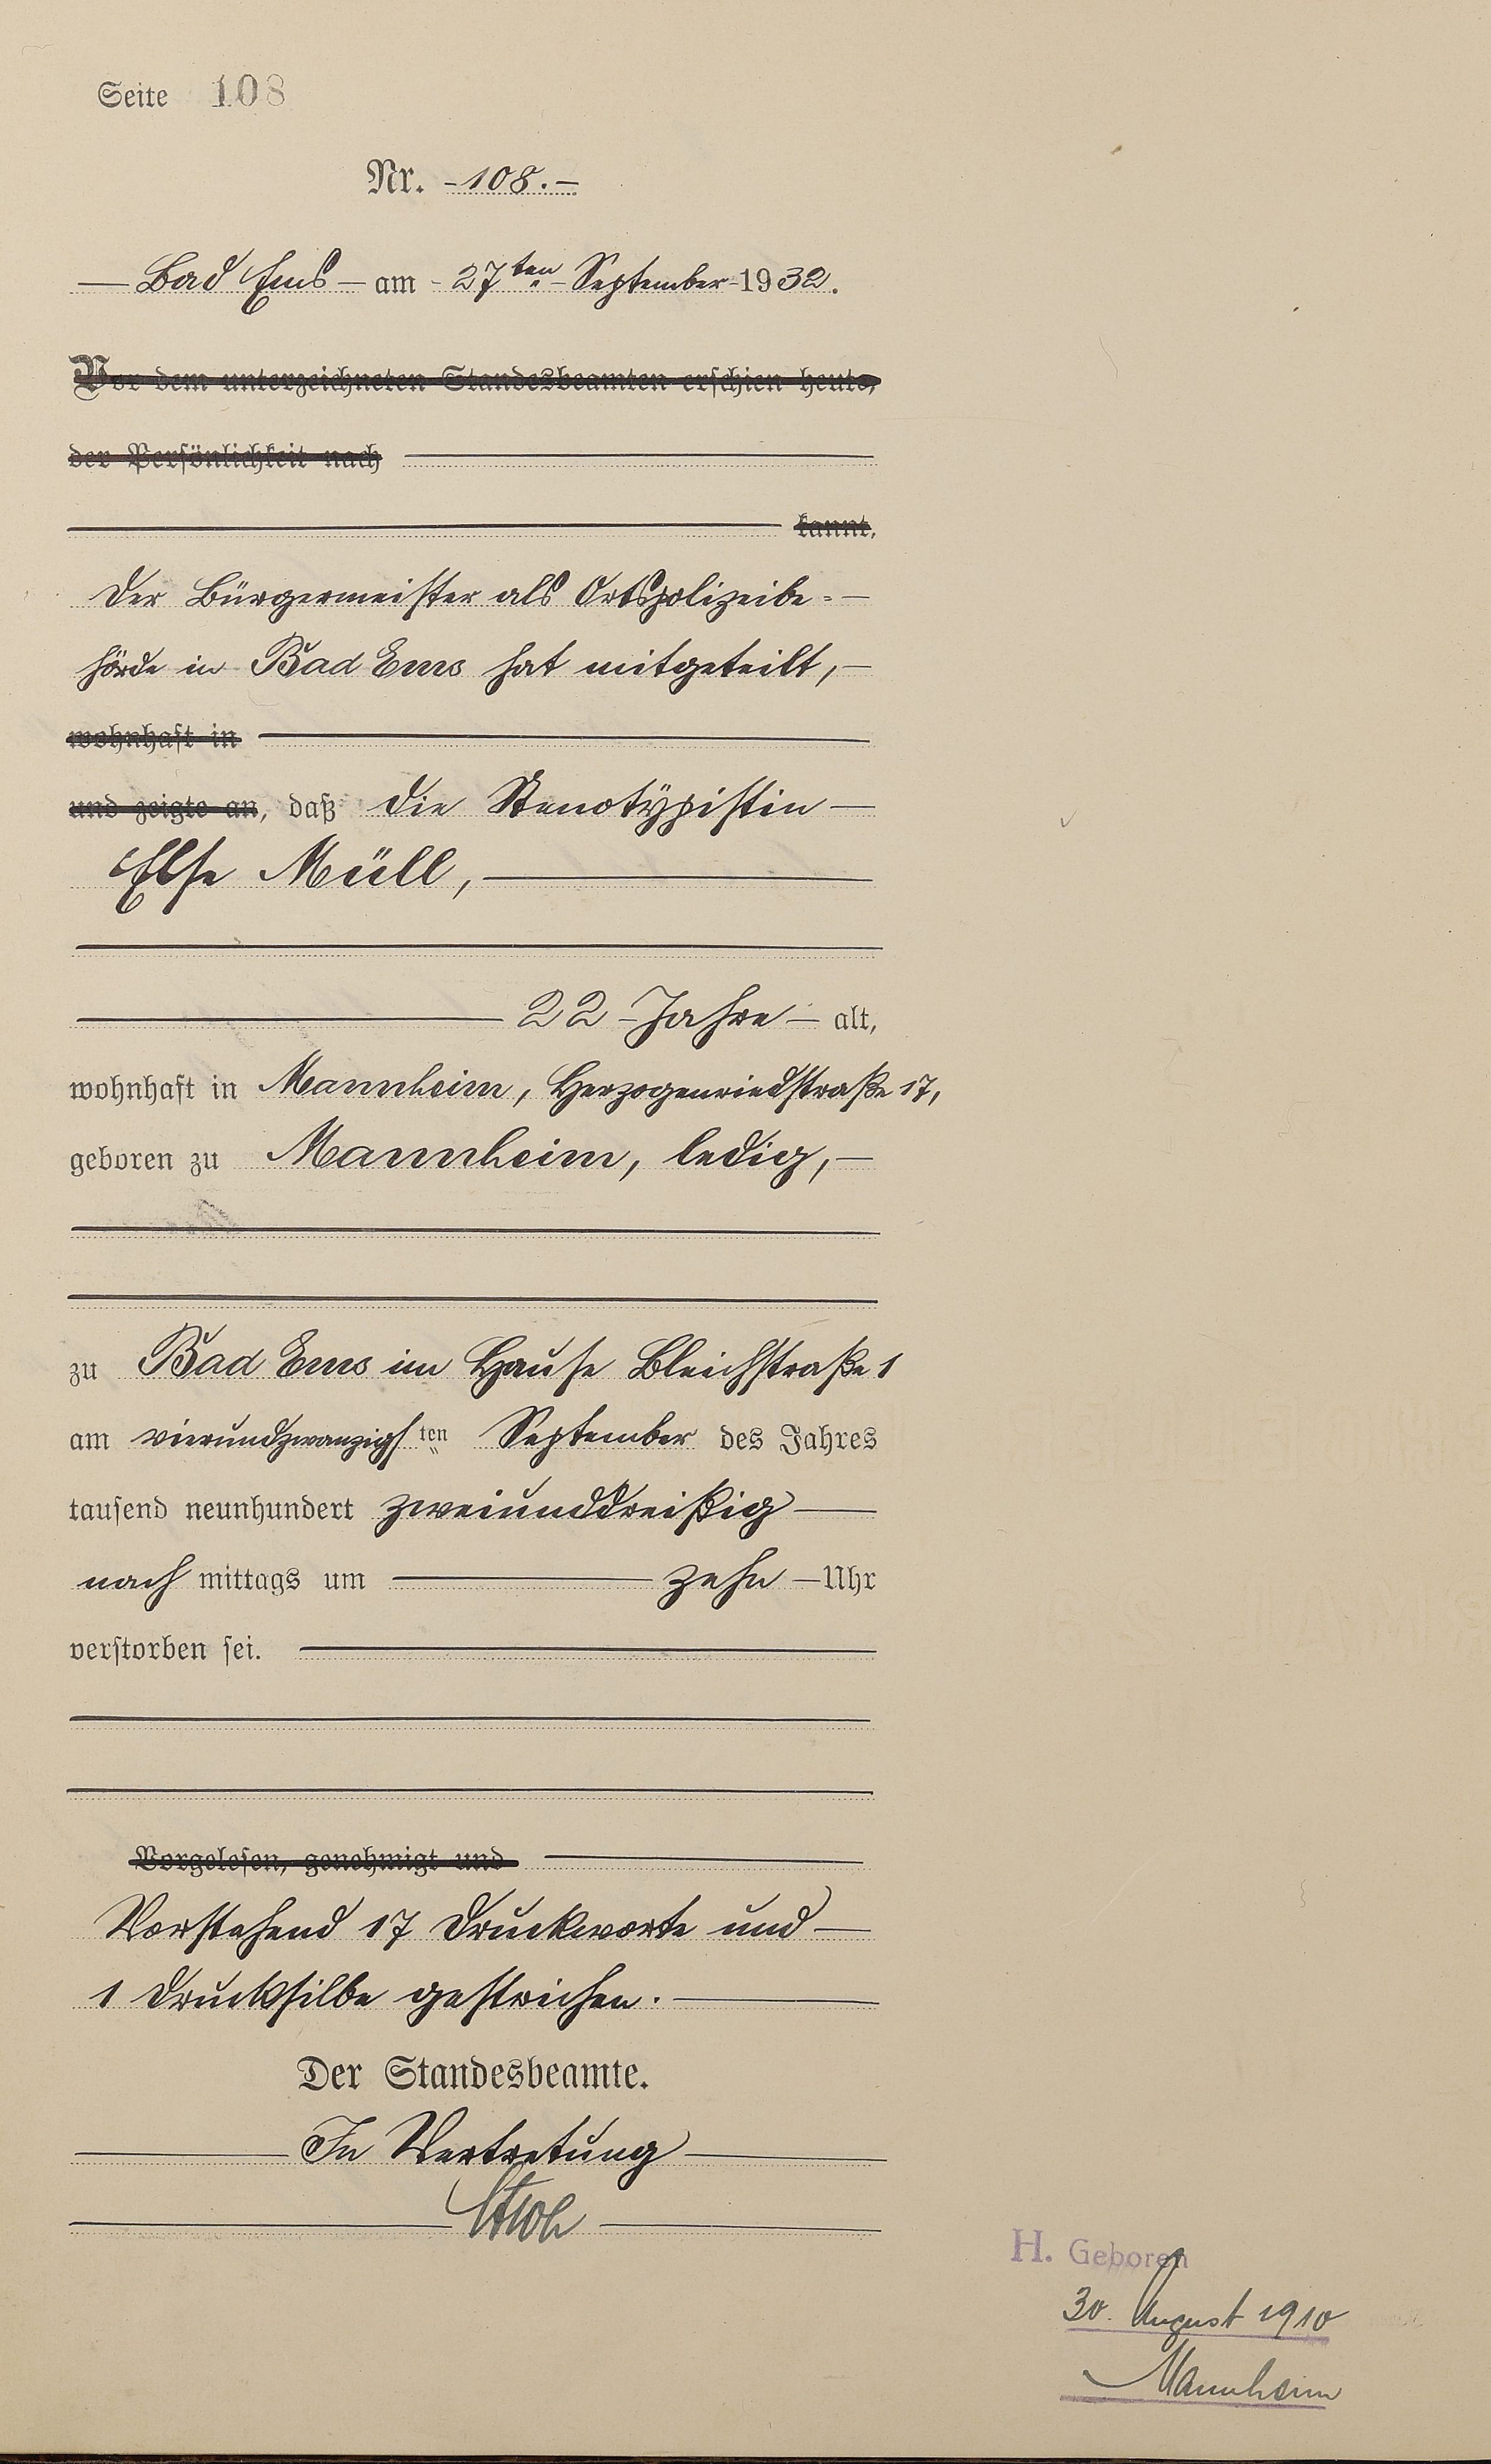 Seite 108
Nr. -108.-
— Bad Ems — am - 27ten - September 1932.
Vor dem unterzeichneten Standesbeamten erschien heute,
der Persönlichkeit nach
kannt,
Der Bürgermeister als Ortspolizeibe- —
hörde in Bad Ems hat mitgeteilt, —
wohnhaft in
und zeigte an, daß die Stenotypistin —
Else Müll, —
22 - Jahre — alt,
wohnhaft in Mannheim, Herzogenriedstraße 17,
geboren zu Mannheim, ledig, —
zu Bad Ems im Hause Bleichstraße 1
am vierundzwanzigsten September des Jahres
tausend neunhundert zweiunddreißig —
nach mittags um — zehn — Uhr
verstorben sei.
Vorgelesen, genehmigt und
Vorstehend 17 Druckworte und —
1 Drucksilbe gestrichen. —
Der Standesbeamte.
In Vertretung
H. Geboren
30. August 1910
Mannheim